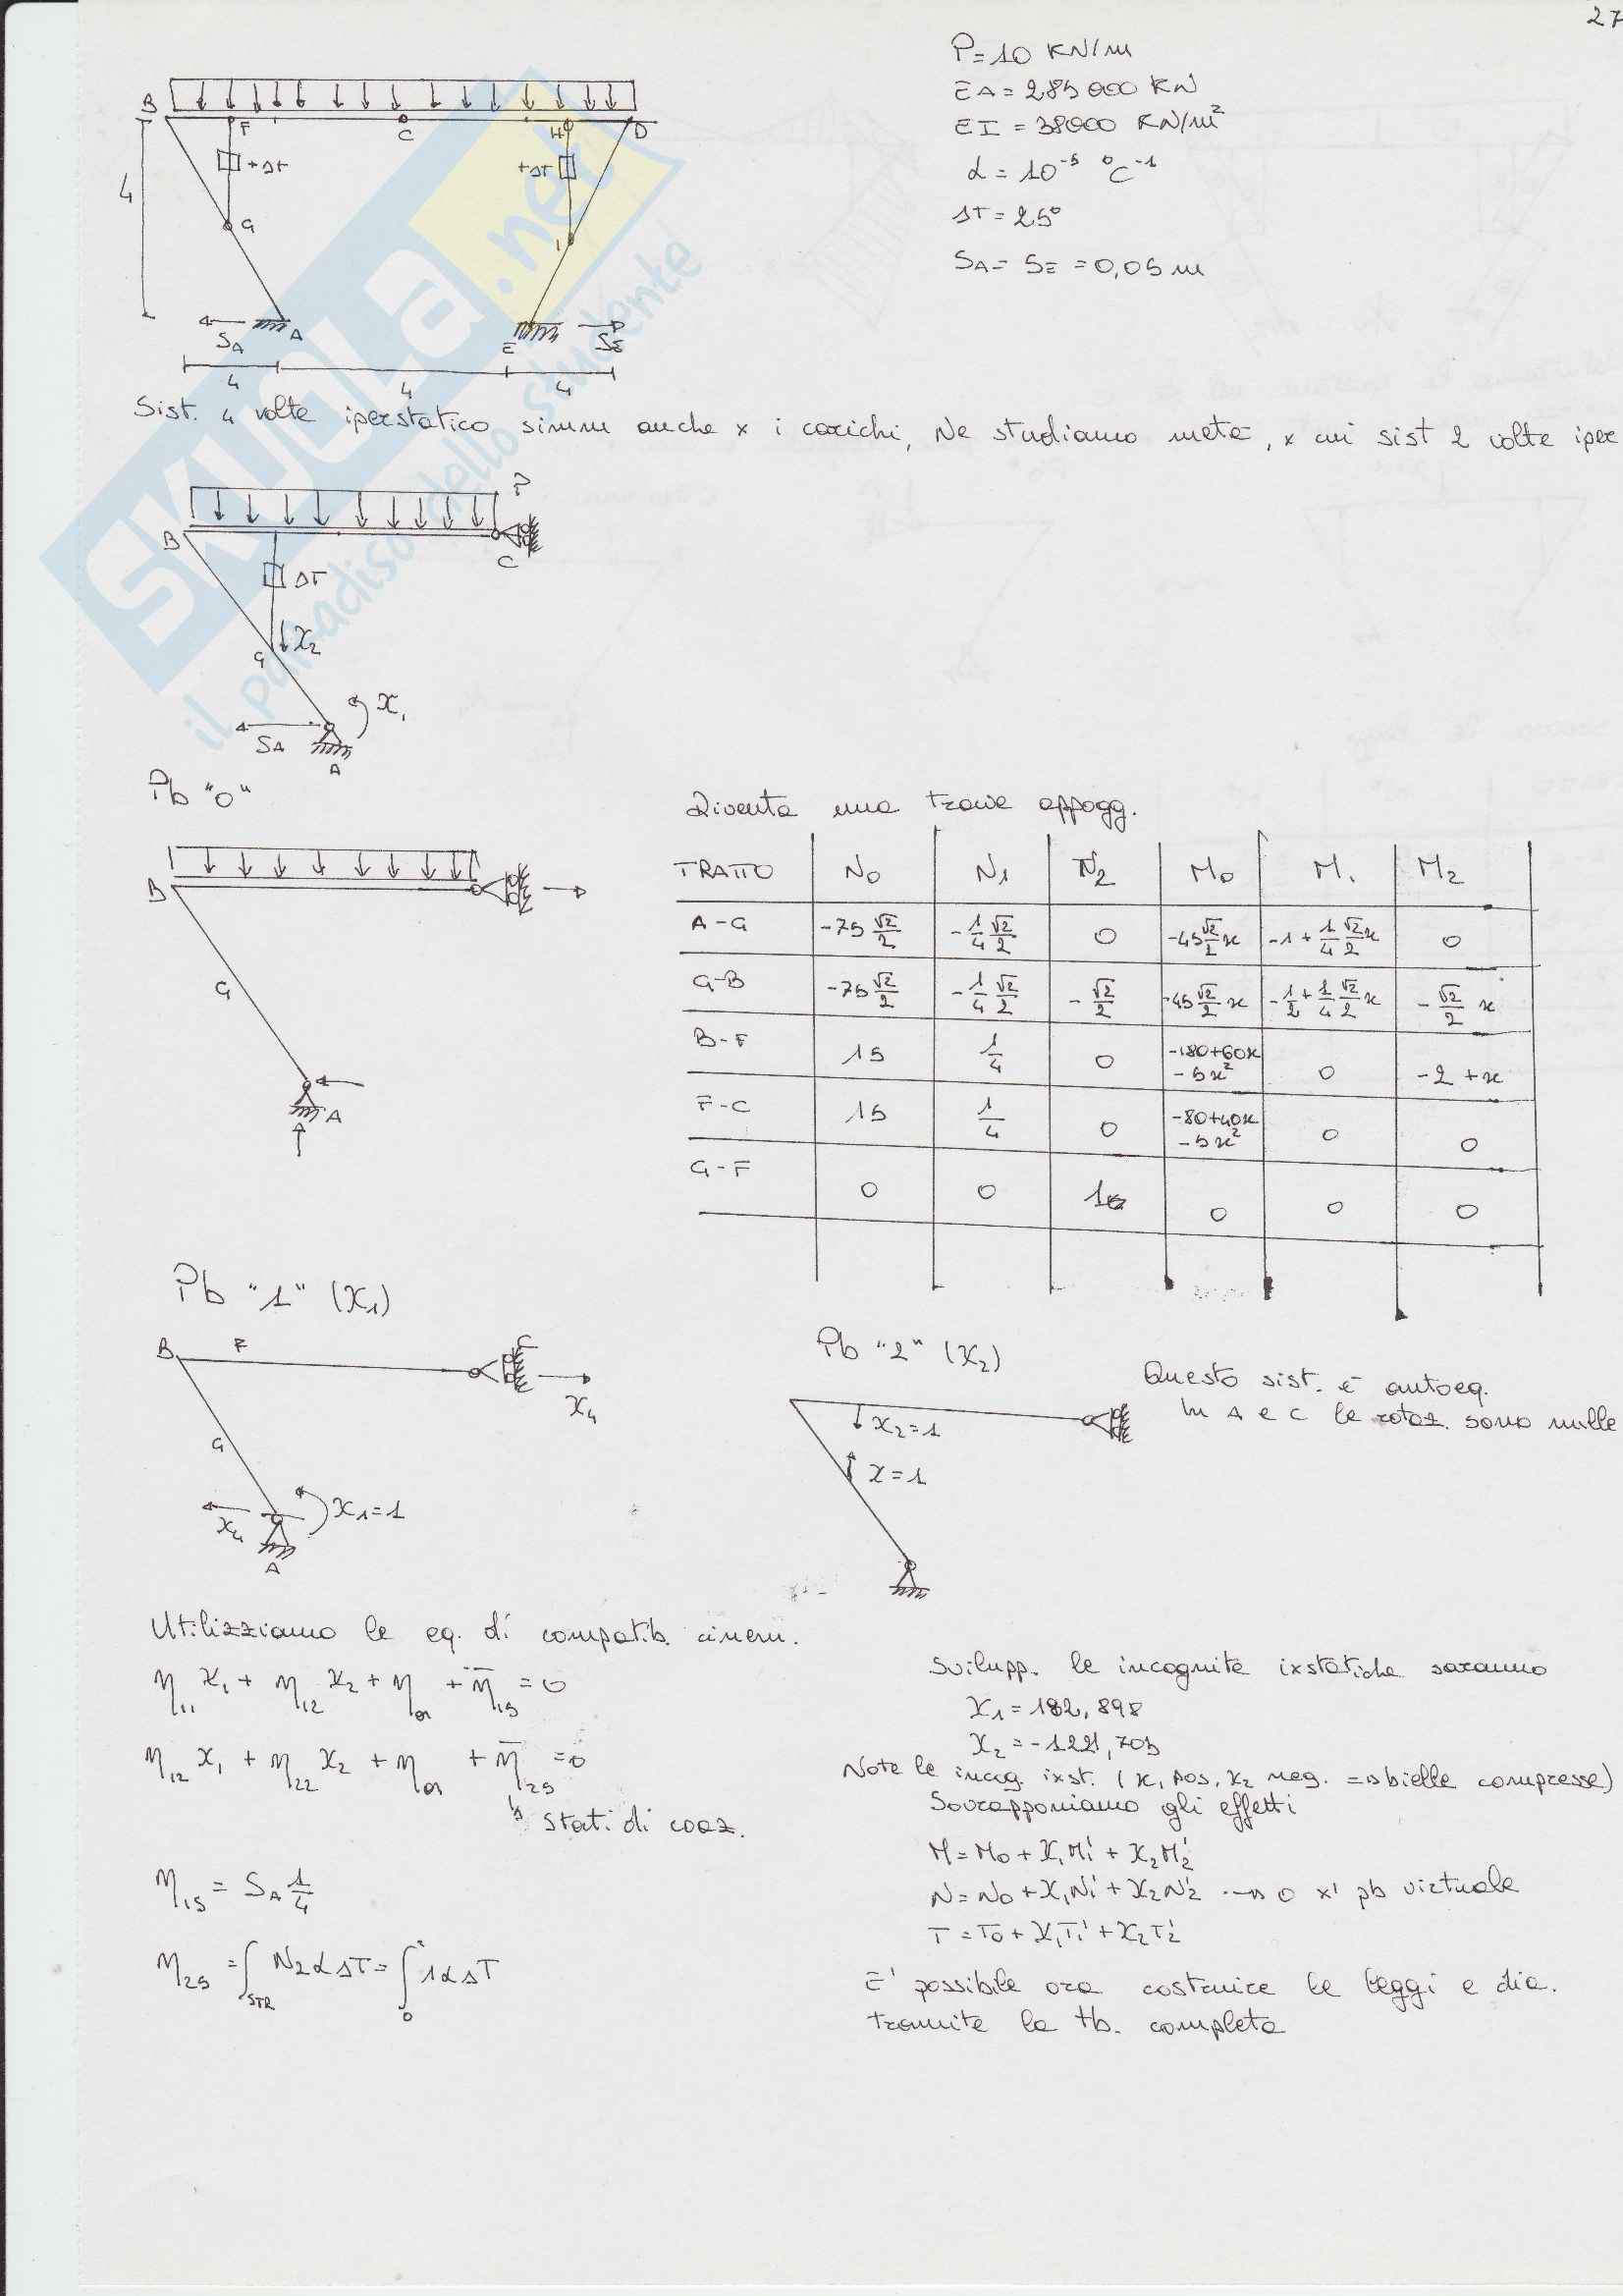 27
P=10 KN/m
EA = 285000 KN
EI = 38000 KN/m²
α = 10⁻⁵ °C⁻¹
ΔT = 25°
SA = SE = 0,05 m
B F C H D
+ΔT +ΔT
4
G I
SA A E SE
4 4 4
Sist. 4 volte iperstatico simm anche x i carichi, Ne studiamo metà, x cui sist 2 volte iper
P
B C
ΔT
G X₂
X₁
SA
A
Pb "0"
B
G
A
Diventa una trave appogg.
TRATTO N₀ N₁ N₂ M₀ M₁ M₂
A-G -75 √2/2 -1/4 √2/2 0 -45 √2/2 x -1 + 1/4 √2/2 x 0
G-B -75 √2/2 -1/4 √2/2 -√2/2 -45 √2/2 x -1/2 + 1/4 √2/2 x -√2/2 x
B-F 15 1/4 0 -180+60x -5x² 0 -2+x
F-C 15 1/4 0 -80+40x -5x² 0 0
G-F 0 0 1 0 0 0
Pb "1" (X₁)
B F C
X₄
G
X₄ X₁=1
A
Pb "2" (X₂)
X₂=1
X=1
Questo sist. è autoeq.
In A e C le rotaz. sono nulle
Utilizziamo le eq. di compatib. cinem.
η₁₁ X₁ + η₁₂ X₂ + η₀₁ + η̄₁s = 0
η₁₂ X₁ + η₂₂ X₂ + η₀₁ + η̄₂s = 0
↳ Stati di coaz.
η₁s = SA 1/4
η₂s = ∫STR N₂ α ΔT = ∫₀ 1 α ΔT
Svilupp. le incognite ixstatiche saranno
X₁ = 182,898
X₂ = -1221,705
Note le incog. ixst. (X₁ pos, X₂ neg. => bielle compresse)
Sovrapponiamo gli effetti
M = M₀ + X₁M₁' + X₂M₂'
N = N₀ + X₁N₁' + X₂N₂' → 0 x' pb virtuale
T = T₀ + X₁T₁' + X₂T₂'
E' possibile ora costruire le leggi e dia.
tramite la tb. completa
SKUOLA.net
il paradiso dello studente